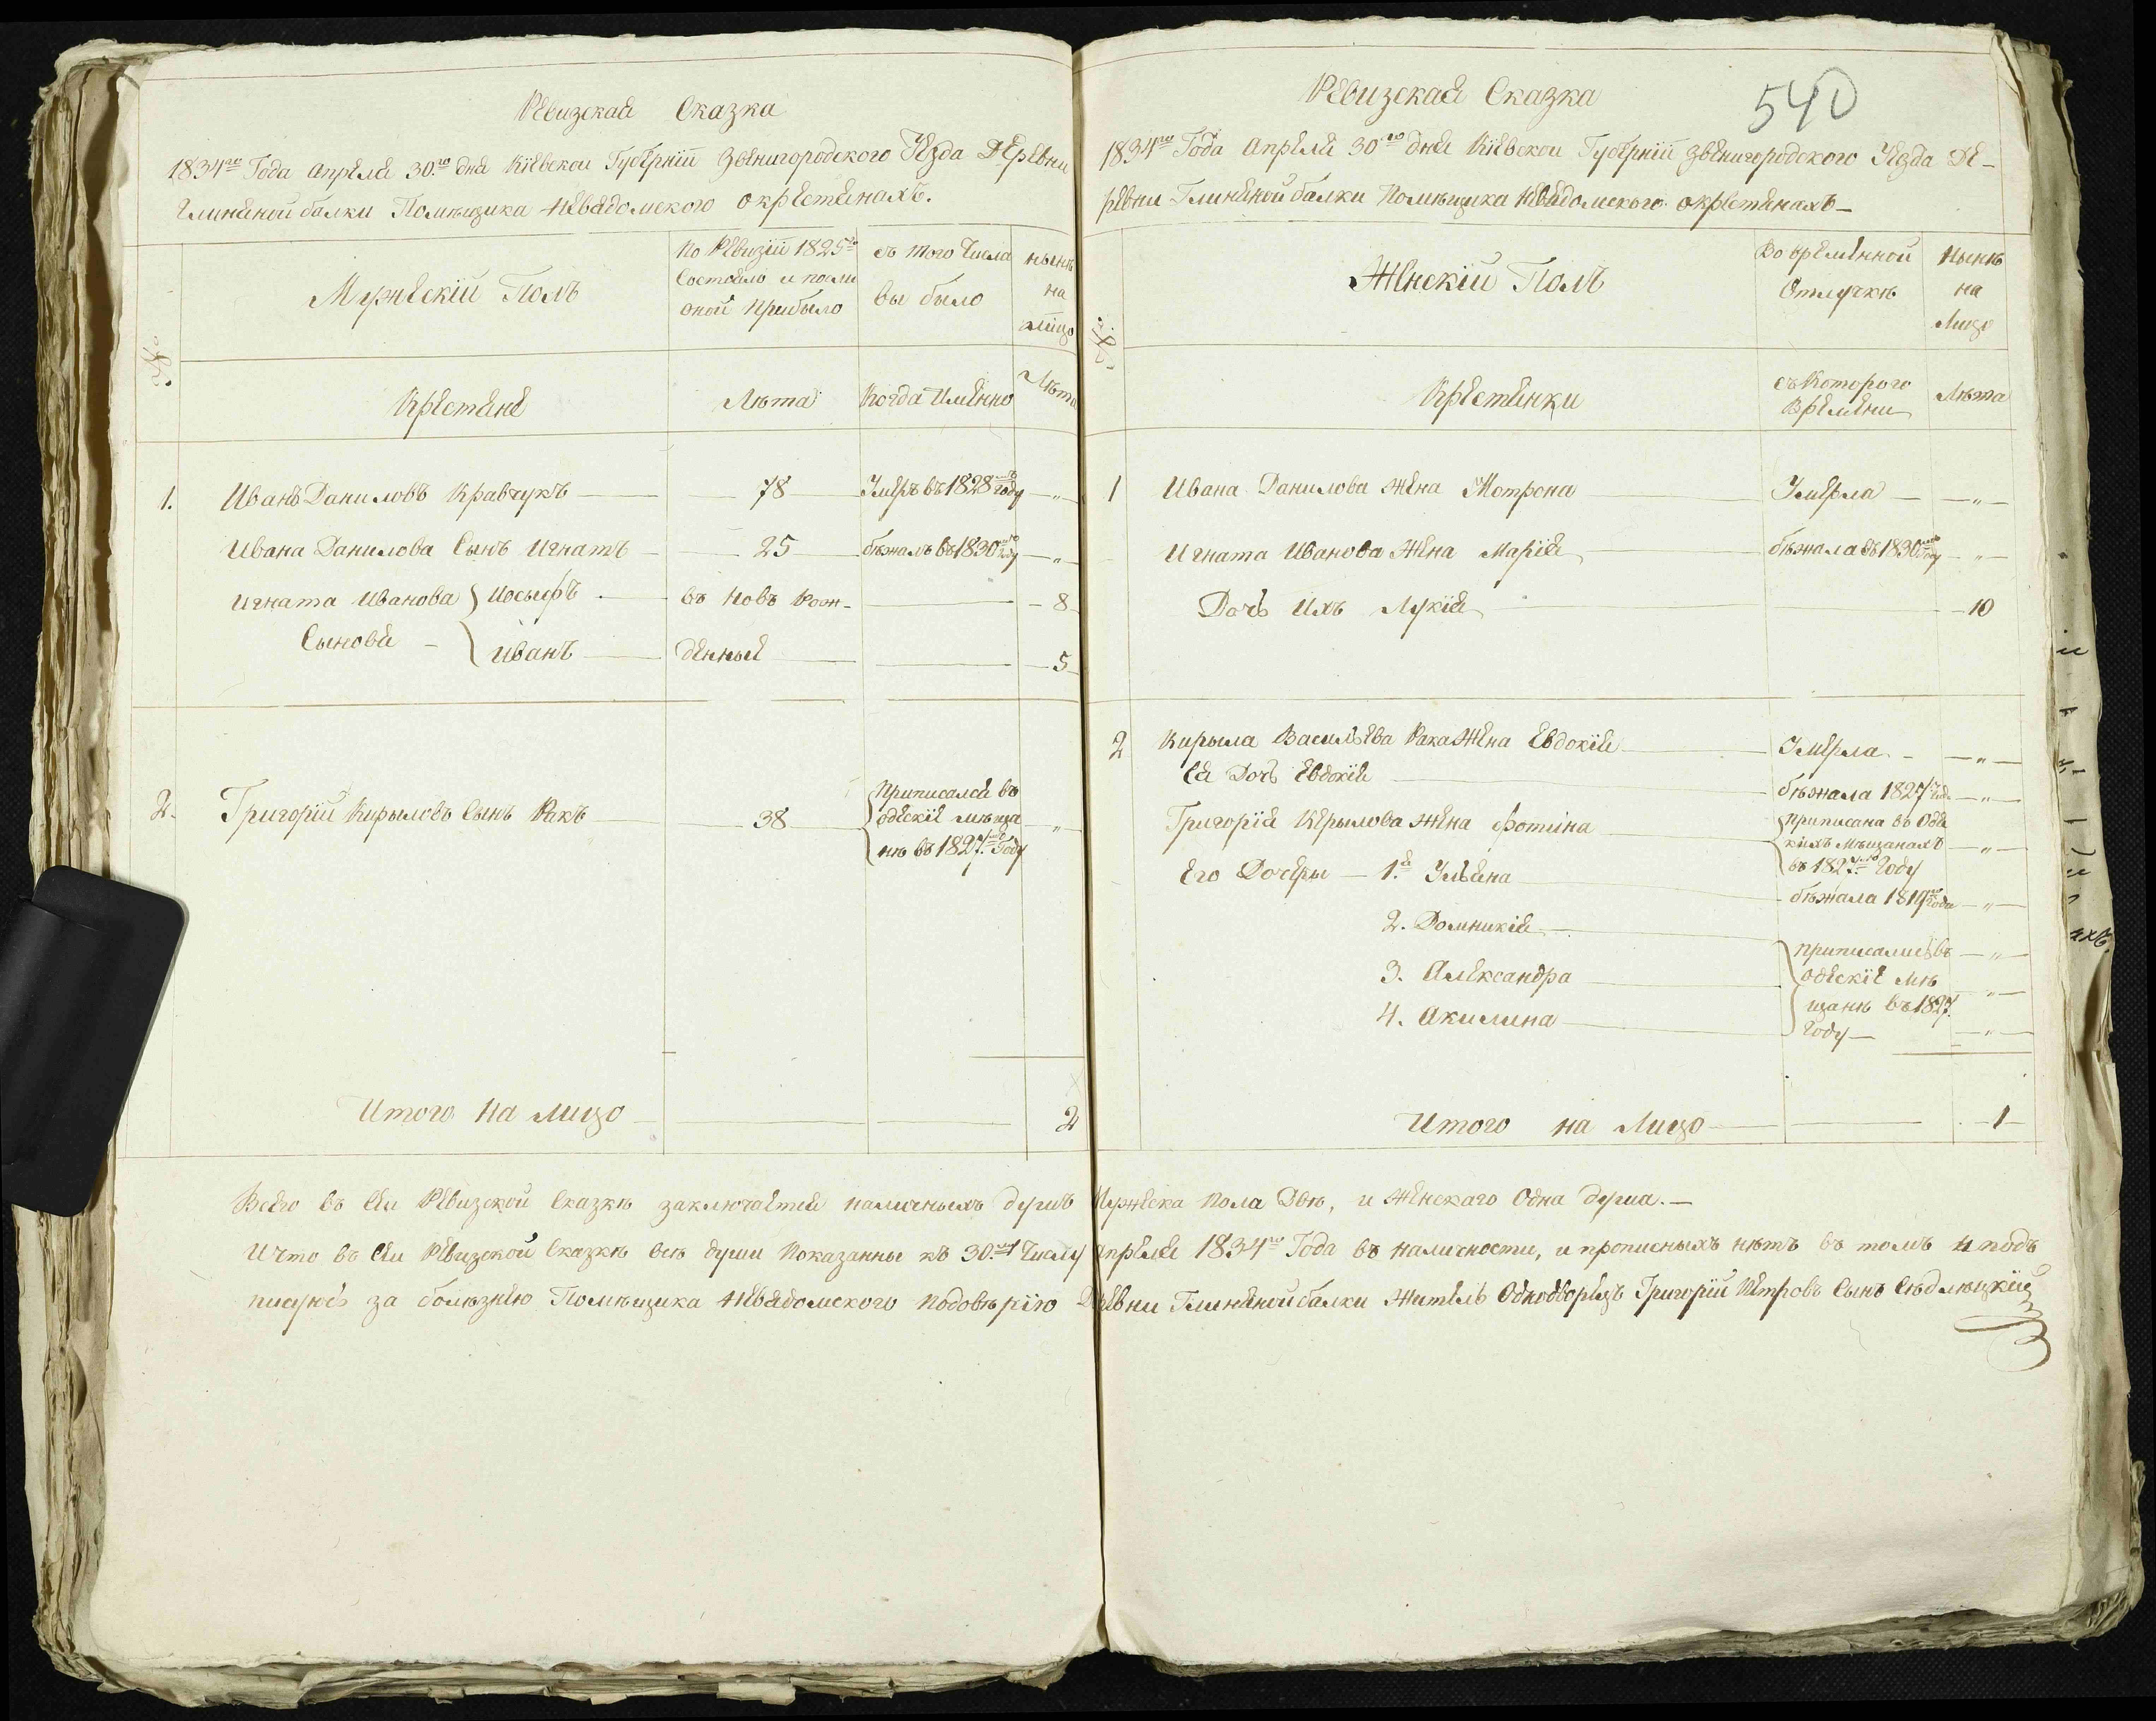 Ревизская Сказка
1834го Года Апреля 30го дня Кіевской Губерніи Звенигородского Уезда Деревни
Глиняной балки Помѣщика Невядомского окрестянахъ.
№
Мужескій Полъ
По Ревизіи 1825го
Состояло и посли
оной прибыло
съ того Числа
вы было
нынѣ
на
лицо
Крестяне
Лѣта
Когда Имянно
Лѣта
1. Иванъ Даниловъ Кравчукъ 78 Умеръ въ 1828мъ году „
Ивана Данилова Сынъ Игнатъ 25 бѣжалъ въ 1830мъ году „
Игната Иванова Иосыфъ въ Новъ Рож- 8
Сыновя Иванъ денные 5
2. Григорій Кирыловъ Сынъ Ракъ 38 „
Приписался въ
одескіе мѣща
не въ 1827мъ Году
Итого На лицо 2
Ревизская Сказка
540
1834го Года Апреля 30го дня Кіевской Губерніи Звенигородского Уезда Де-
ревни Глиняной балки Помѣщика Невядомского окрестянахъ
№
Женскій Полъ
Во временной
Отлучкѣ
Нынѣ
на
Лицо
Крестянки
съ Которого
Времени
Лѣта
1 Ивана Данилова жена Мотрона Умерла „
Игната Иванова Жена Марія бѣжала въ 1830мъ Году „
Дочь Ихъ Лукія 10
2 Кирыла Васильева Рака Жена Евдокія Умерла „
Ея Дочь Евдокія бѣжала 1827го Года „
Григорія Кырылова Жена Фотіна „
приписана въ Оде
кихъ Мѣщанахъ
въ 1827мъ Году
Его Дочери 1я Ульяна бѣжала 1819го года „
2. Домникія „
3. Александра „
4. Акилина „
приписались въ
Одескіе мѣ
щане въ 1827.
Году
Итого на Лицо 1
Всего въ Сей Ревизской Сказкѣ заключается наличныхъ душъ Мужеска Пола Двѣ, и Женскаго Одна душа.
И что въ Сей Ревизской Сказкѣ всѣ души Показанны къ 30му Числу Апреля 1834го Года въ наличности, и прописныхъ нѣтъ въ томъ и под
писуюсь за болѣзнею Помѣщика Невядомского Подовѣрію Деревни Глиняной балки Житель Однодворецъ Григорій Петровъ Сынъ Сѣдлѣцкій